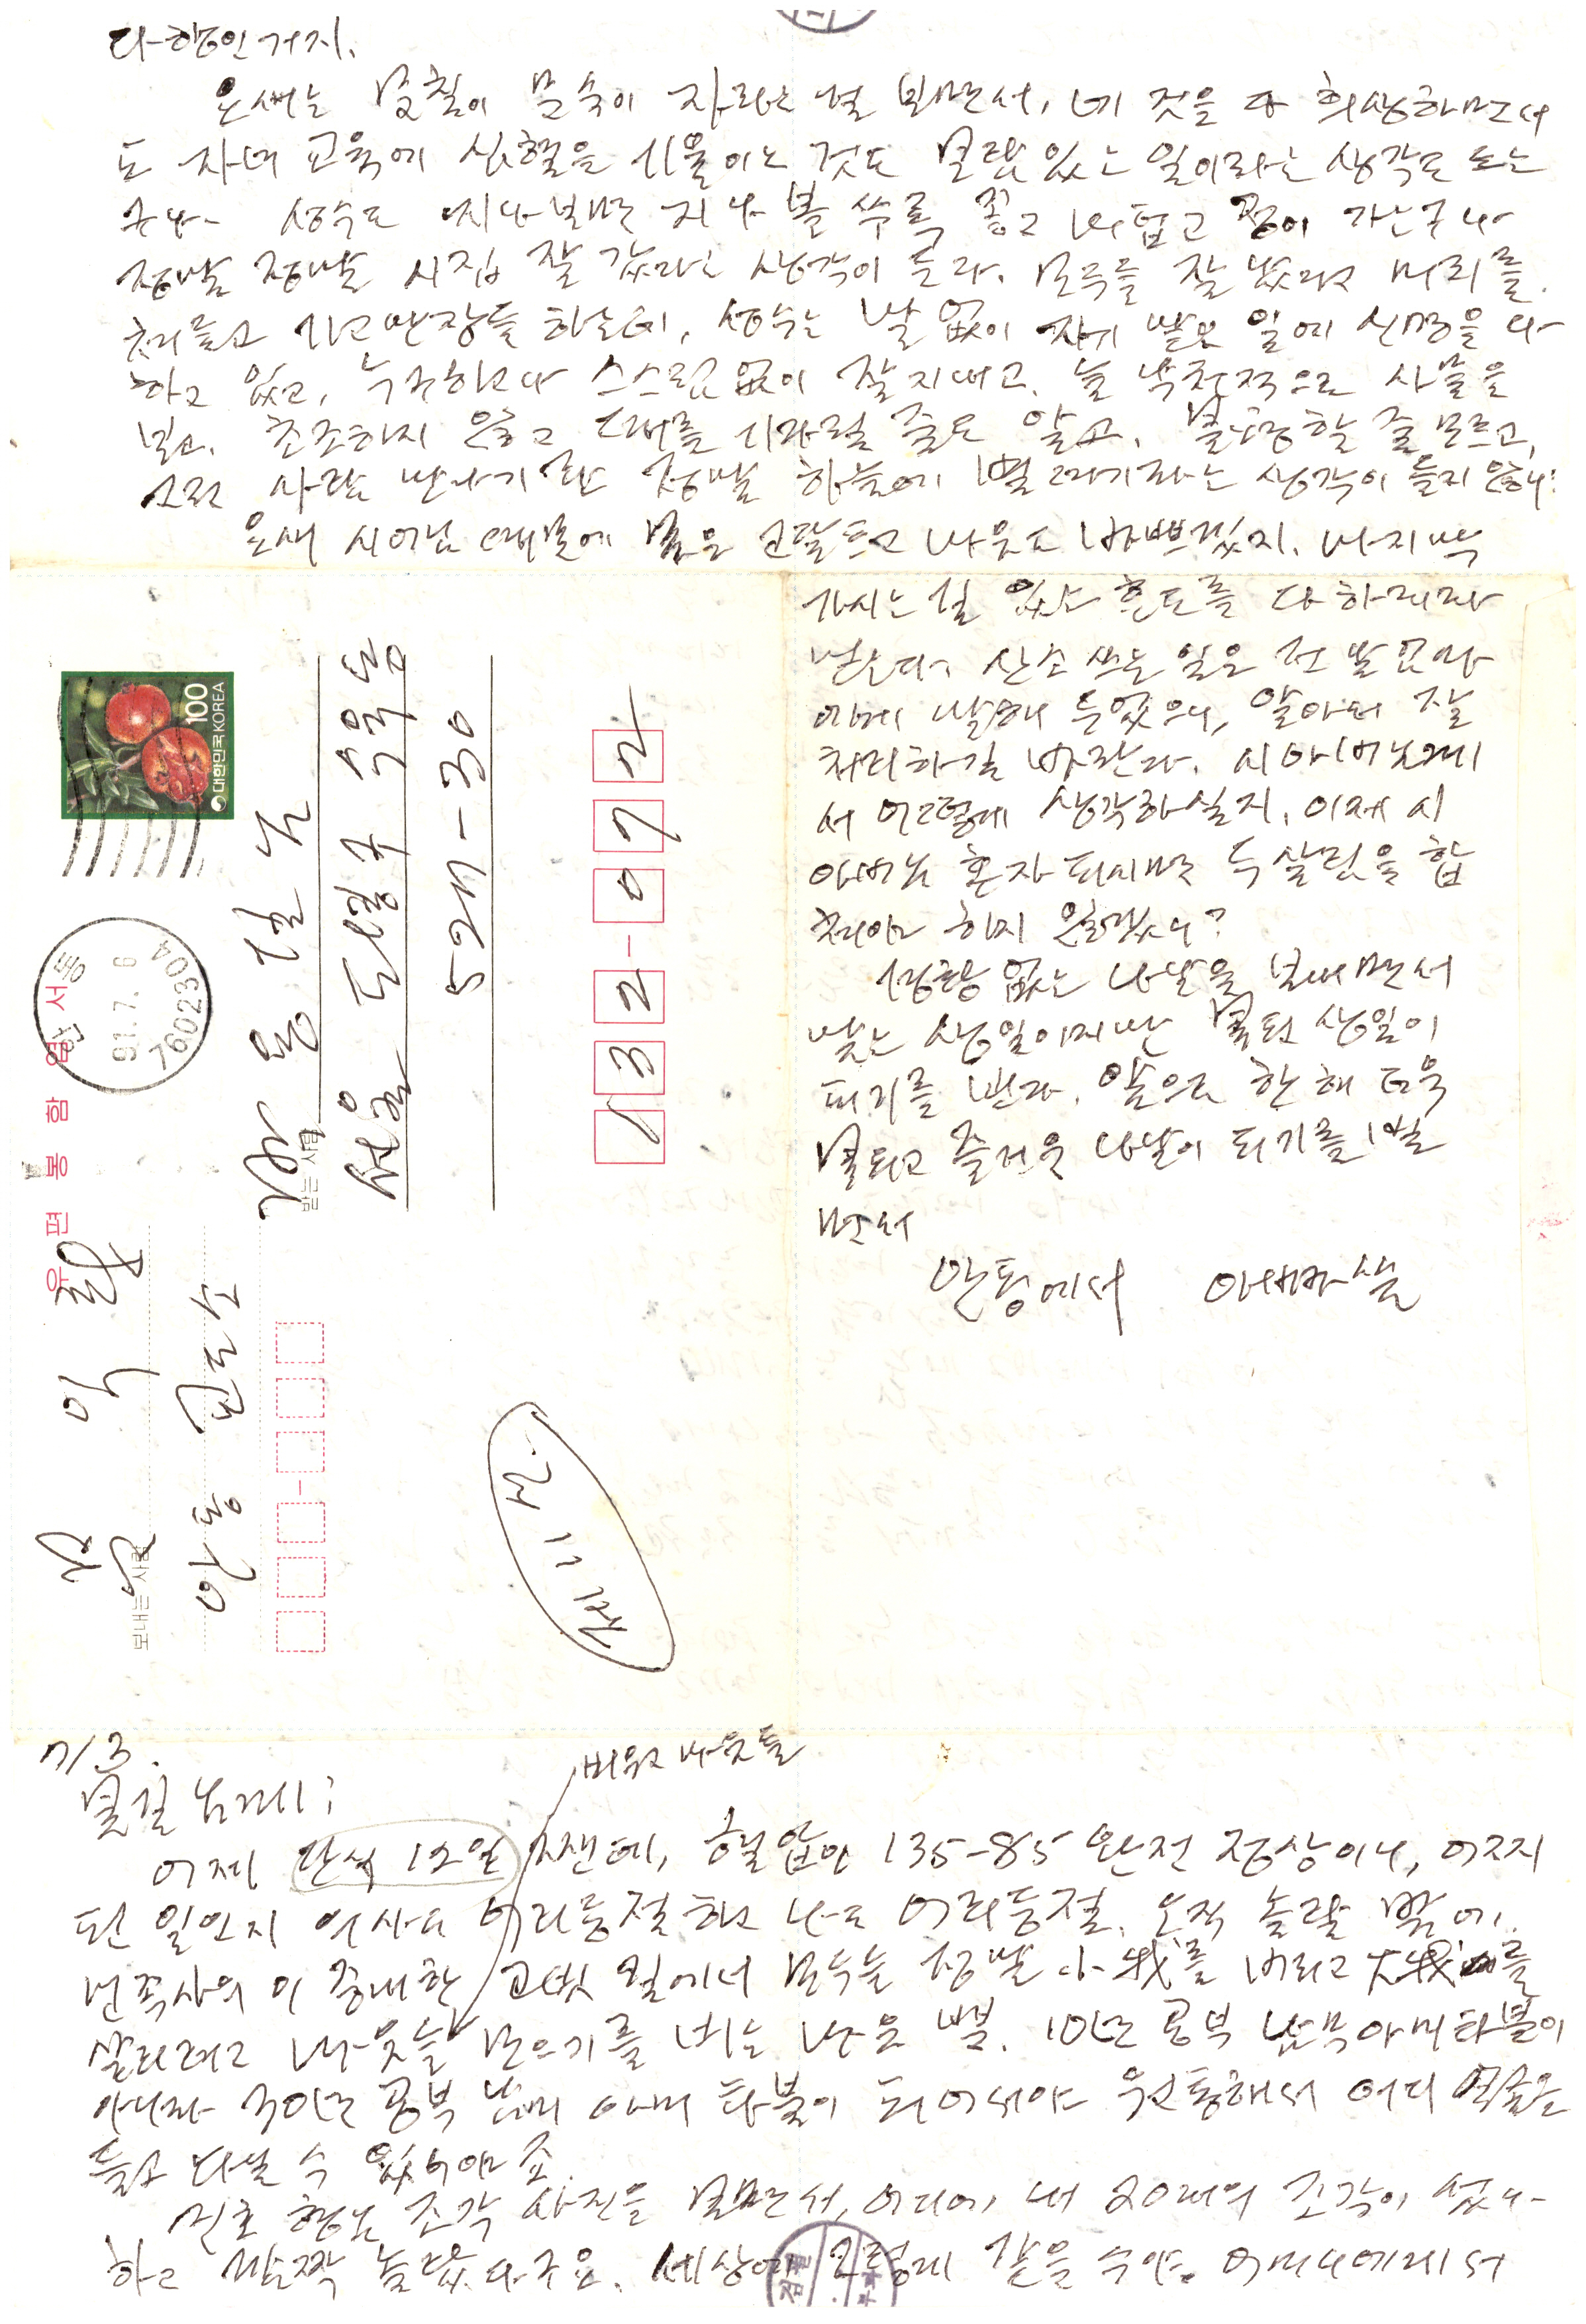 다행인 거지.
요새는 문칠이 문숙이 자라는 걸 보면서, 네 것을 다 희생하면서
도 자녀 교육에 심혈을 기울이는 것도 보람 있는 일이라는 생각도 드는
구나. 성수도 지나보면 지나 볼 수록 좋고 미덥고 정이 가는구나
정말 정말 시집 잘 갔다는 생각이 든다. 모두들 잘 났다고 머리를
쳐들고 기고만장들 하는데, 성수는 말 없이 자기 맡은 일에 신명을 다
하고 있고, 누구하고나 스스럼없이 잘 지내고, 늘 낙천적으로 사물을
보고, 초조하지 않고 때를 기다릴 줄도 알고, 불평할 줄 모르고,
그런 사람 만나기란 정말 하늘에 별따기라는 생각이 들지 않니?
요새 시어머님 때문에 몸은 고달프고 마음도 바쁘겠지. 마지막
가시는 길 있는 효도를 다 하려라
믿는다. 산소 쓰는 일은 전 말
에게 말해 두었으니, 알아서 잘
처리하길 바란다. 시아버님께
서 어떻게 생각하실지, 이제 시
아버님 혼자 되시면 두 살림을 합
쳐야 하지 않겠니?
경황 없는 나날을 보내면서
맞는 생일이지만 복된 생일이
되기를 빈다. 앞으로 한 해 더욱
복되고 즐거운 나날이 되기를 빌
면서
안동에서 아빠가 씀
대한민국 KOREA 100
안동
91.7.6
7602304
우편봉함엽서
받는사람
박용길
서울 도봉구 수유동
527-30
132-072
보내는사람
문익환
안동 교도소
제11신.
7/3.
봄길님께;
비우고 마음들
어제 단식 12일 짼데, 혈압이 135-85 완전 정상이니, 어찌
된 일인지 의사도 어리둥절하고 나도 어리둥절. 오직 놀랄 밖에.
민족사의 이 중대한 고빗 길에서 모두들 정말 小我를 버리고 大我를
살리려고 마음들 모으기를 비는 마음 뿐. 10년 공부 남무아미타불이
아니라 40년 공부 남무 아미 타불이 되어서야 우리 어디 얼굴을
들고 다닐 수 있어야죠.
조각 사진을 보면서, 어디에 내 20대의 조각이 있나
하고 깜짝 놀랐다구요. 세상에 그렇게 같을 수야. 어머니에게서